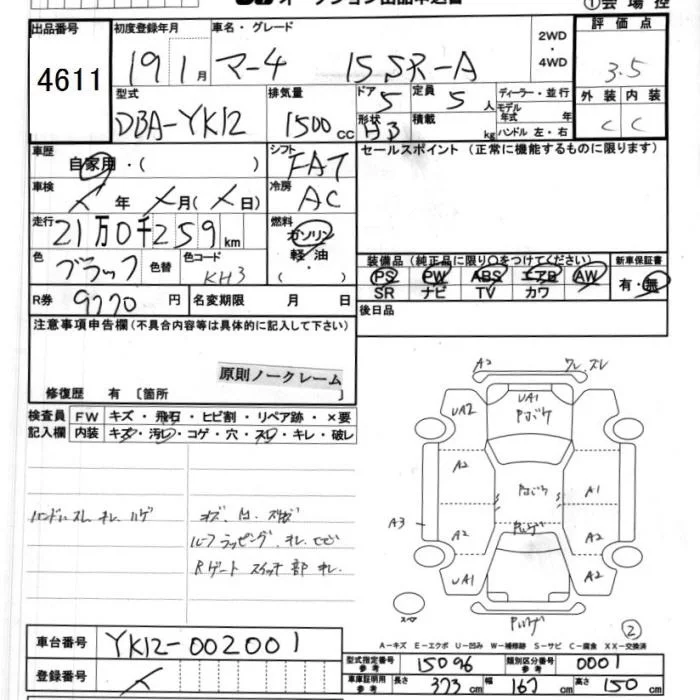 ①会場控
出品番号 初度登録年月 車名・グレード 2WD・4WD 評価点
4611 19 1月 マーチ 15SR-A 3.5
型式 排気量 ドア 5 定員 5人 ディーラー・並行 外装 内装
DBA-YK12 1500cc 形状 HB 積載 kg モデル年式 年 C C
ハンドル 左・右
車歴 シフト セールスポイント(正常に機能するものに限ります)
自家用・( ) FAT
車検 冷房
年 月( 日) AC
走行 燃料
21万0千259km ガソリン
色 色替 色コード 軽油
ブラック KH3 ・( )
装備品(純正品に限り○をつけてください) 新車保証書
PS PW ABS エアB AW 有・無
SR ナビ TV カワ
R券 9770円 名変期限 月 日 後日品
注意事項申告欄(不具合内容等は具体的に記入して下さい)
原則ノークレーム
修復歴 有 〔箇所 〕
検査員 FW キズ・飛石・ヒビ割・リペア跡・×要
記入欄 内装 キズ・汚レ・コゲ・穴・スレ・キレ・破レ
ハンドルスレ キレ ハゲ
ルーフラッピング キレ
Rゲート スイッチ部 キレ
A2 ワレ ズレ
UA2 UA1
A2 A1
A3 A2 A2
UA1 A2
②
A-キズ E-エクボ U-凹み W-補修跡 S-サビ C-腐食 XX-交換済
車台番号 YK12-002001
型式指定番号 参考 15096 類別区分番号 参考 0001
登録番号
車庫証明用 参考 長さ 373cm 幅 167cm 高さ 150cm